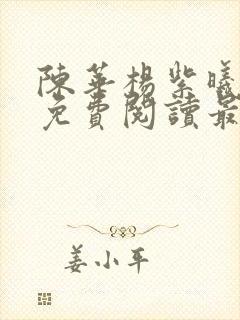 陳華楊紫曦
免費閱讀最
姜小平